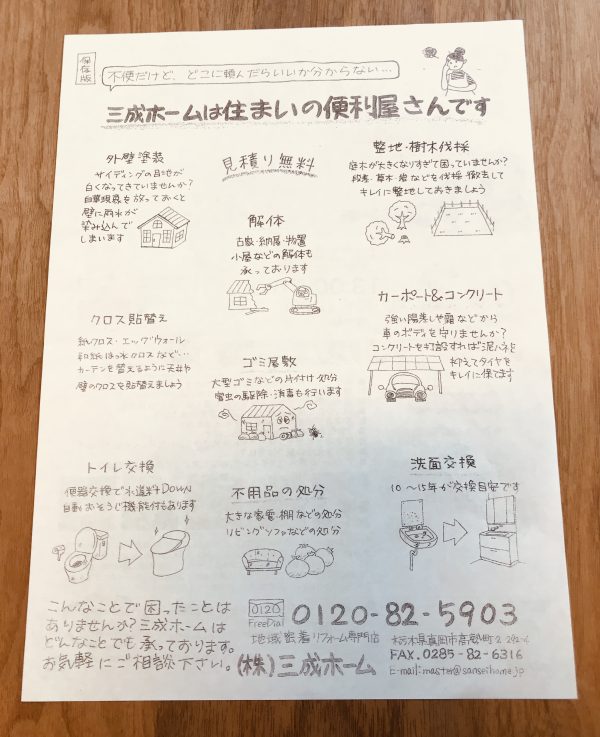 保存版
不便だけど、どこに頼んだらいいか分からない…
三成ホームは住まいの便利屋さんです
外壁塗装
サイディングの目地が
白くなってきていませんか?
白華現象を放っておくと
壁に雨水が
染み込んで
しまいます
見積り無料
整地・樹木伐採
庭木が大きくなりすぎて困っていませんか?
段差・草木・岩などを伐採・撤去して
キレイに整地しておきましょう
解体
古家・納屋・物置
小屋などの解体も
承っております
クロス貼替え
紙クロス・エッグウォール
和紙はっ水クロスなど…
カーテンを替えるように天井や
壁のクロスを貼替えましょう
カーポート&コンクリート
強い陽差しや霜などから
車のボディを守りませんか?
コンクリートを打設すれば泥ハネを
抑えてタイヤを
キレイに保てます
ゴミ屋敷
大型ゴミなどの片付け・処分
害虫の駆除・消毒も行います
トイレ交換
便器交換で水道料DOWN
自動おそうじ機能付もあります
不用品の処分
大きな家電・棚などの処分
リビングソファなどの処分
洗面交換
10〜15年が交換目安です
こんなことで困ったことは
ありませんか?三成ホームは
どんなことでも承っております。
お気軽にご相談下さい。
0120
FreeDial
0120-82-5903
地域密着リフォーム専門店
(株)三成ホーム
栃木県真岡市高勢町2-292-6
FAX.0285-82-6316
E-mail:master@sanseihome.jp